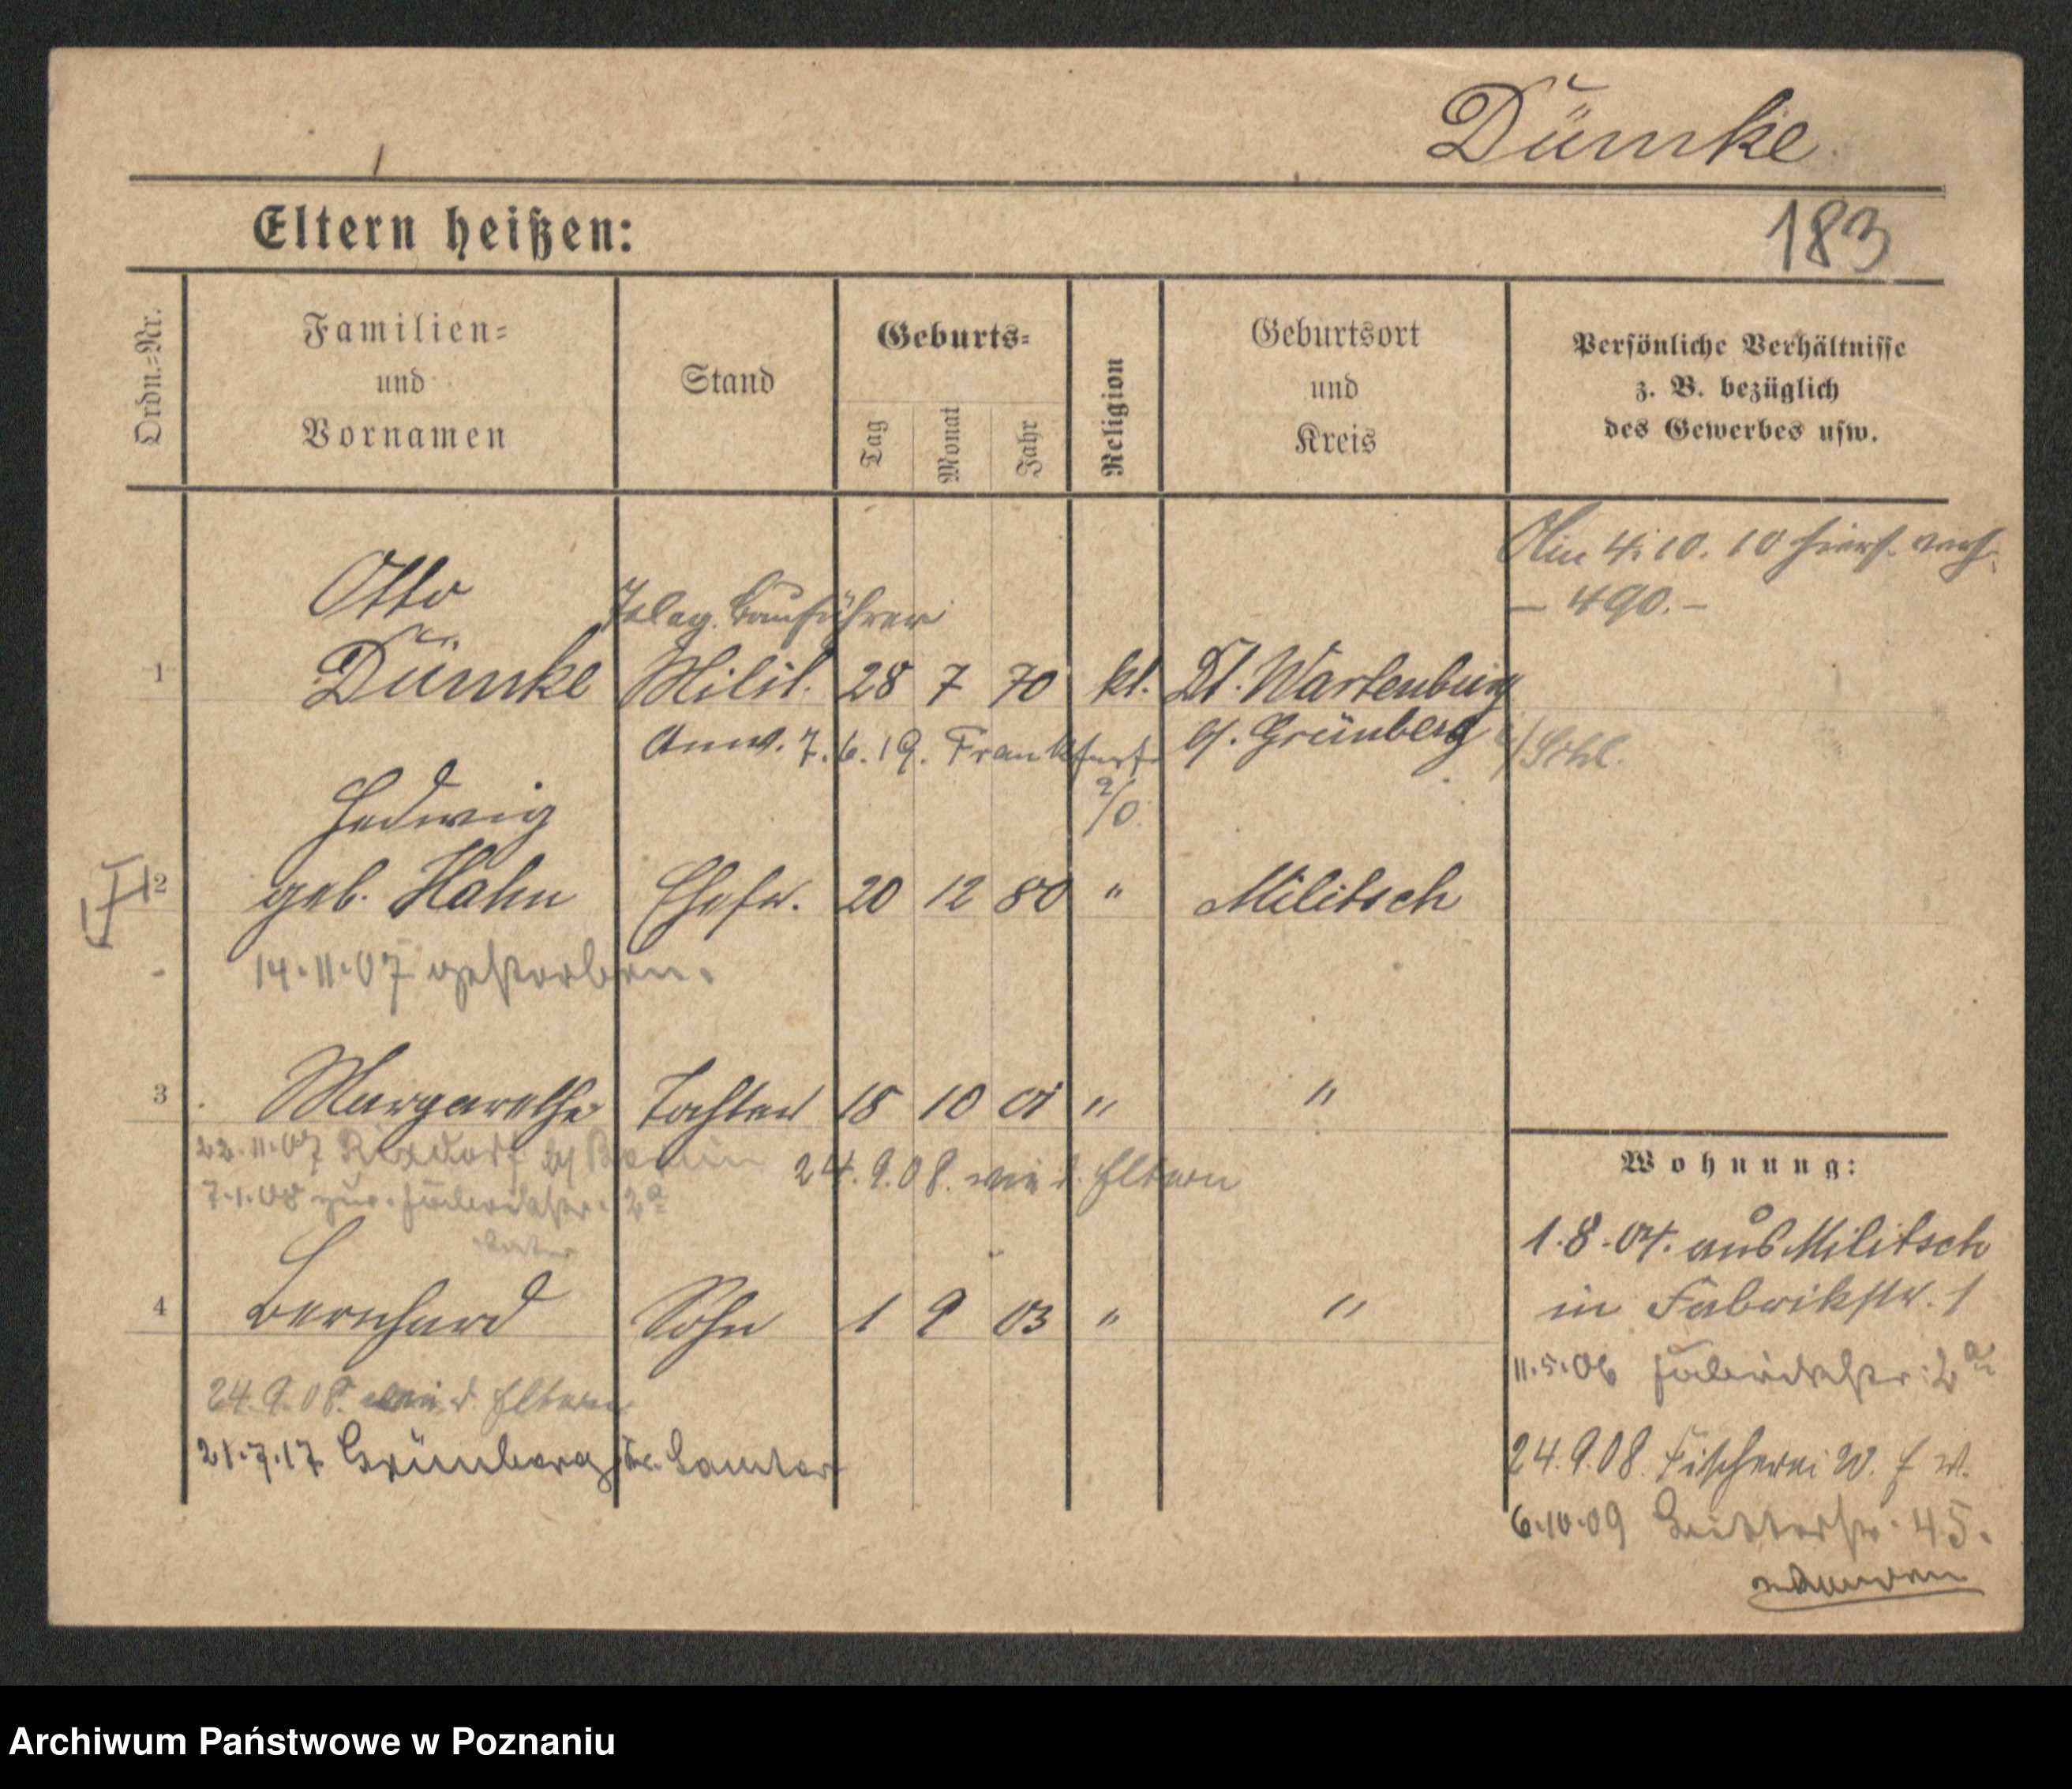 Dümke
Eltern heißen:
183
Ordn.-Nr.
Familien-
und
Vornamen
Stand
Geburts-
Tag
Monat
Jahr
Religion
Geburtsort
und
Kreis
Persönliche Verhältnisse
z. B. bezüglich
des Gewerbes usw.
Am 4. 10. 10
– 490. –
Otto
Teleg. Bauführer
1 Dümke Milit. 28 7 70 kt. Dt. Wartenburg
Anw. 7. 6. 19. Frankfurt a/O.
Grünberg i/Schl.
Hedwig
2 geb. Hahn Ehefr. 20 12 80 " Militsch
14.11.07 gestorben.
3 Margarethe Tochter 18 10 01 " "
22.11.07 Rixdorf b/ Berlin
24.9.08. wie d. Eltern
7.1.08 zur. Fabrikstr. 2a
4 Bernhard Sohn 1 9 03 " "
24.9.08. wie d. Eltern
21.7.17 Grünberg Kr. Samter
Wohnung:
1.8.04. aus Militsch
in Fabrikstr. 1
11.5.06 Fabrikstr. 2a
24.9.08. Fischerei
6.10.09 45.